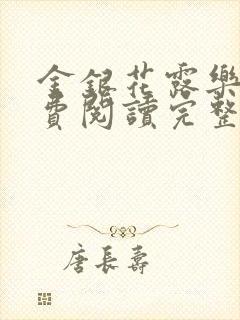 金銀花露樂
費閱讀完整
唐長壽